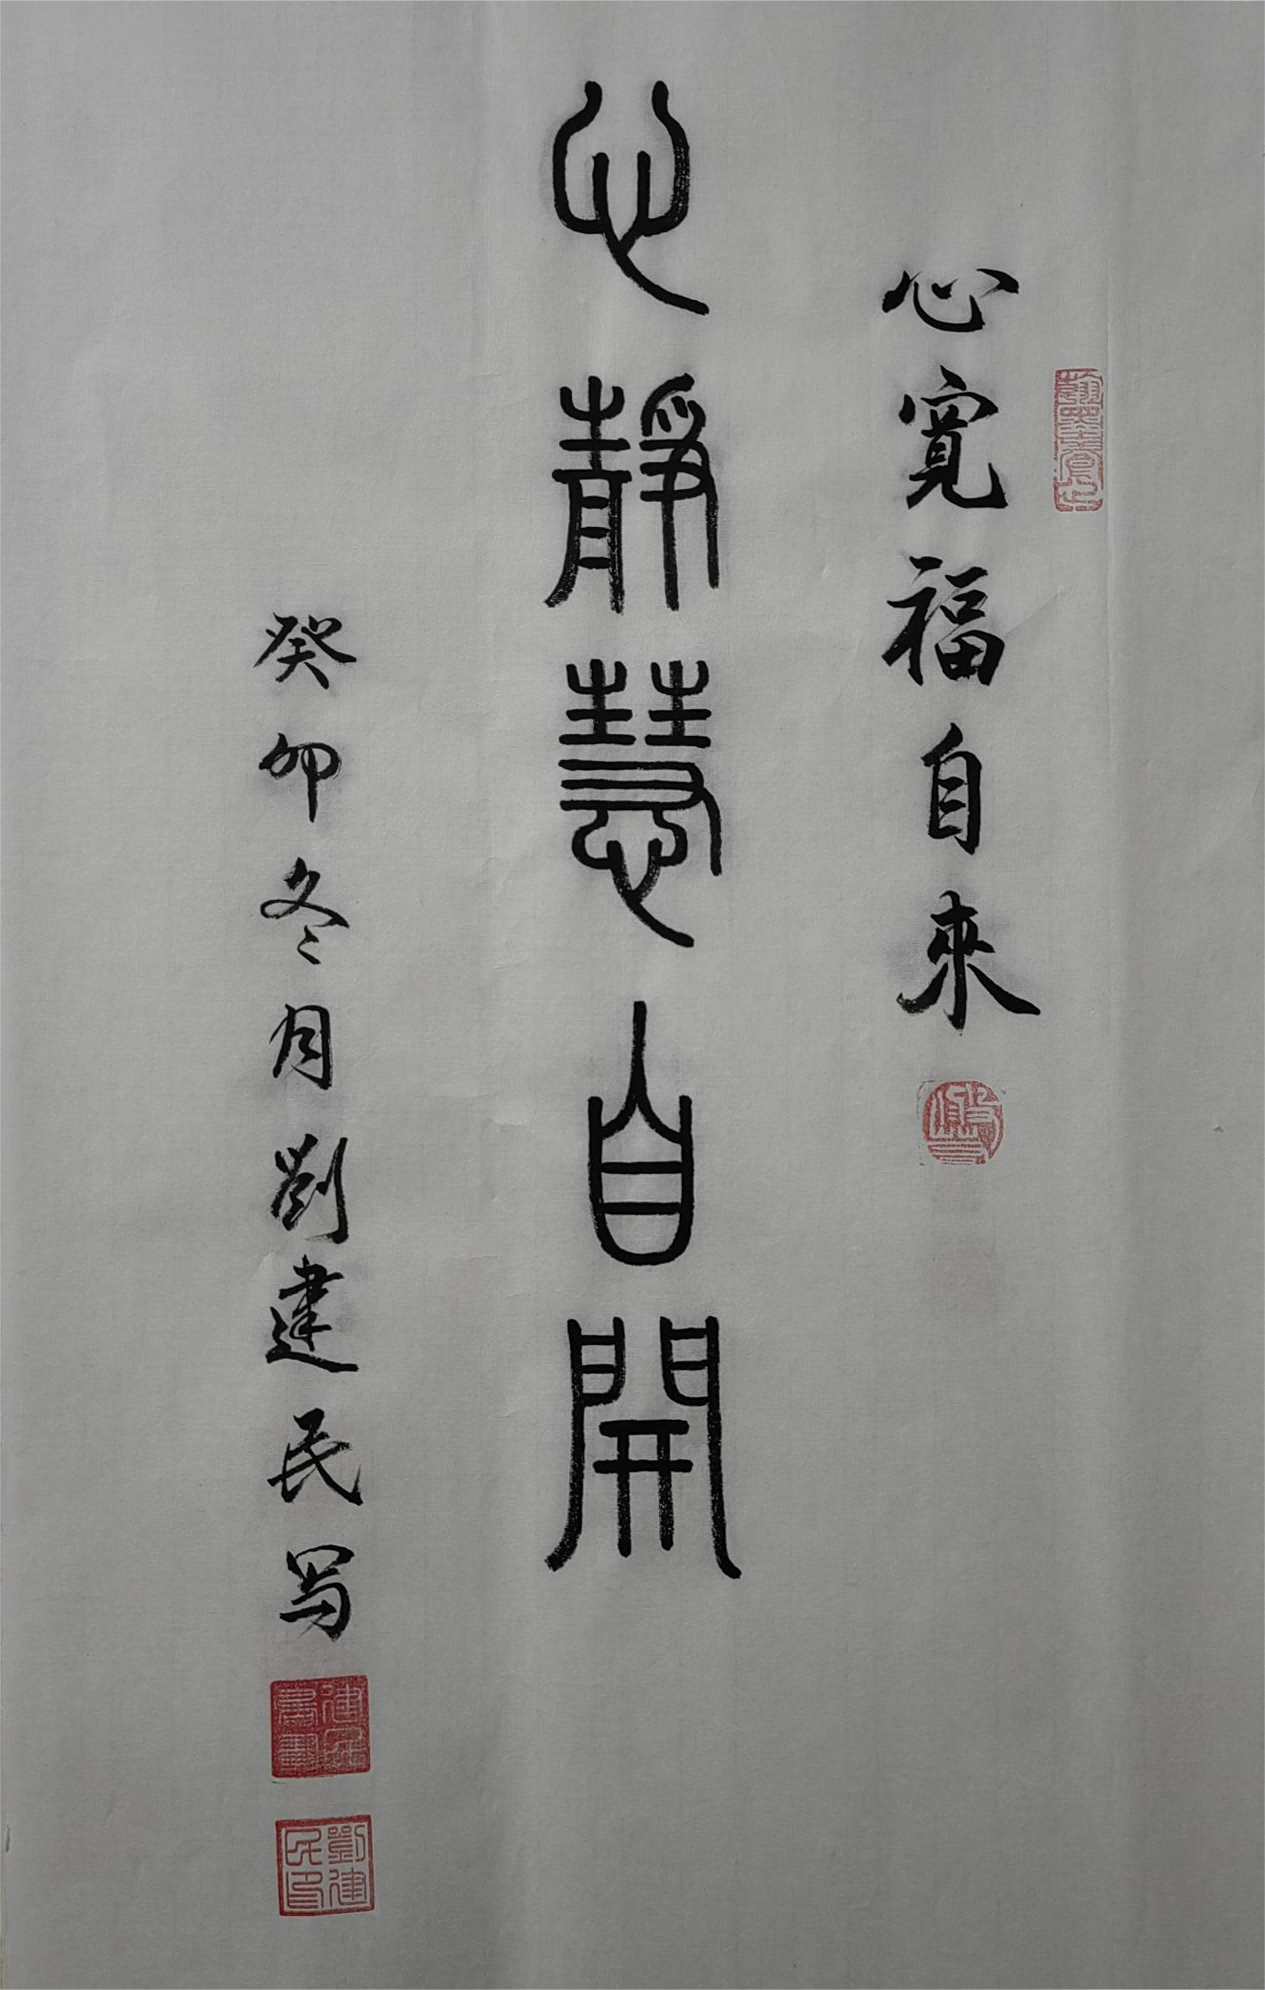 心寬福自來
心靜慧自開
癸卯冬月劉建民写
劉建民印